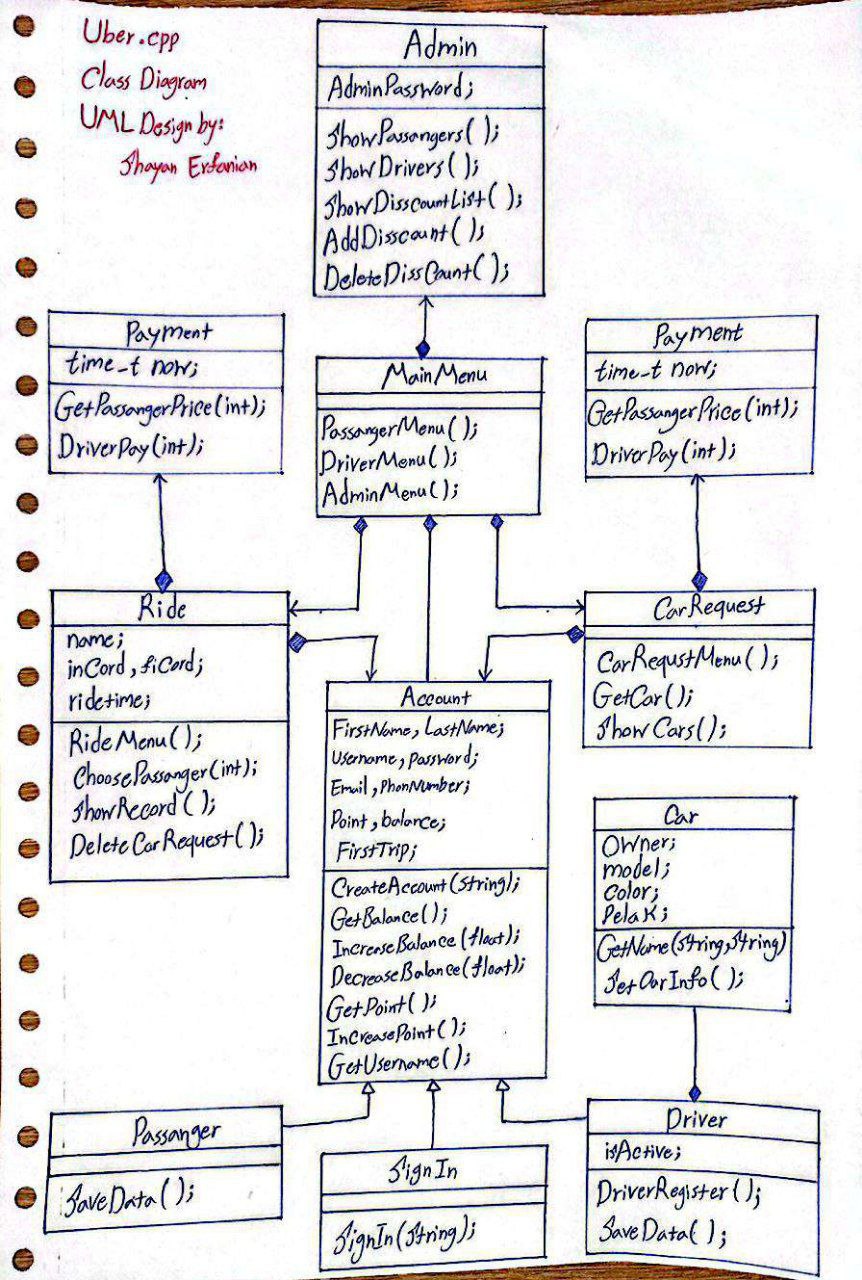 Uber.cpp
Class Diagram
UML Design by:
Shayan Erfanian
Admin
AdminPassword;
ShowPassangers( );
ShowDrivers( );
ShowDisscountList( );
AddDisscount( );
DeleteDissCount( );
Payment
time_t now;
GetPassangerPrice(int);
DriverPay(int);
MainMenu
PassangerMenu( );
DriverMenu( );
AdminMenu( );
Payment
time_t now;
GetPassangerPrice(int);
DriverPay(int);
Ride
name;
inCord, fiCord;
ridetime;
RideMenu( );
ChoosePassanger(int);
ShowRecord( );
DeleteCarRequest( );
CarRequest
CarRequstMenu( );
GetCar( );
ShowCars( );
Account
FirstName, LastName;
Username, password;
Email, PhonNumber;
Point, balance;
FirstTrip;
CreateAccount(String);
GetBalance( );
IncreaseBalance(float);
DecreaseBalance(float);
GetPoint( );
IncreasePoint( );
GetUsername( );
Car
Owner;
model;
color;
Pelak;
GetName(String,String)
SetCarInfo( );
Passanger
SaveData( );
SignIn
SignIn(String);
Driver
isActive;
DriverRegister( );
SaveData( );